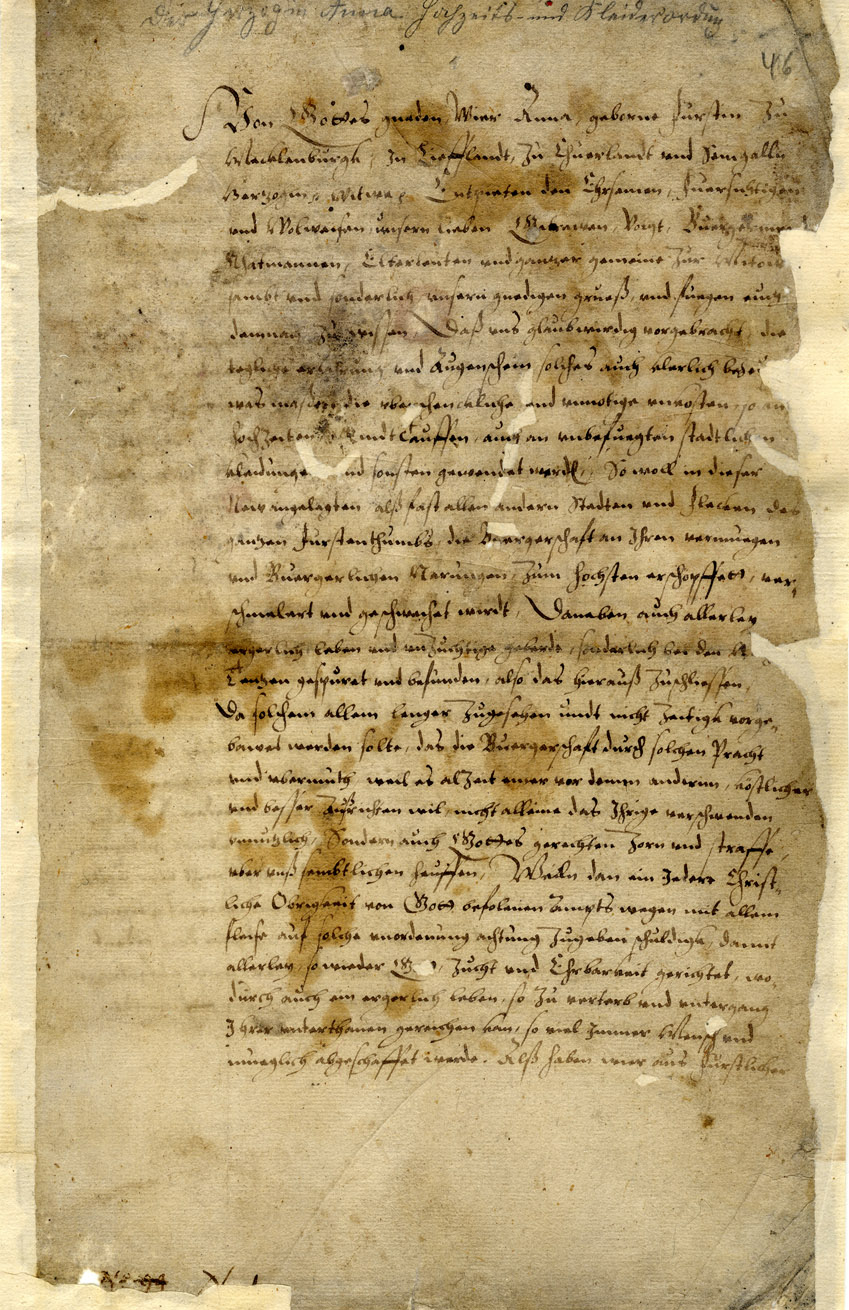 Der Herzogin Anna Hochzeits- und Kleiderordnung
46
Von Gottes gnaden Wier Anna, geborne furstin Zu
Mecklenburgk, In Liefflandt, Zu Churlandt vnd Semgalln
Hertzogin, Witwe, Entpieten den Ehrsamen, fuersichtigen
vnd Wolweisen, vnsern lieben Getrewen, Voigt, Buergermei
Rhatmannen, Elterleuten vnd gantzer gemeine Zur Mitow
sambt vnd sonderlich vnsern gnedigen grueß, vnd fuegen euch
demnach Zu wissen, Daß vns glaubwirdig vorgebracht, die
tegliche erfahrung vnd Augenschein solches auch klerlich beZeu
was massen die vnnotige vnkosten, so an
hochZeiten Kindtauffen, auch an vnbefuegten stadtlichen
kleidunge vnd sonsten gewendet werden, So woll in dieser
New angelegten alß fast allen andern Stedten vnd flecken des
gantzen furstenthumbs, die Buergerschaft an Ihren vermuegen
vnd Buergerlichen Narungen, Zum hochsten erschopffett, ver-
schmelert vnd geschwechet wirdt, Daneben auch allerley
ergerlich leben vnd vnZuchtige geberde, sonderlich bei den
Tentzen gespuret vnd befunden, also das hierauß Zuschliessen,
Da solchem allem lenger Zugesehen undt nicht Zeitigk vorge-
bawet werden solte, das die Buergerschaft durch solchen Pracht
vnd vbermuth weil es alZeit einer vor dennen anderen, kostlicher
vnd besser Zurichten wil, nicht alleine das Ihrige verschwenden
vnnutzlich, Sondern auch Gottes gerechten Zorn vnd straffe,
vber vnß sembtlichen heuffen, Weiln dan ein Jeder Christ-
liche Obrigkeit von Gott befolenen Ampts wegen mit allem
fleise auf solche vnordenung achtung Zugeben schuldigk, damit
allerley, so wieder Zucht vnd Ehrbarkeit gerichtet, wo-
durch auch ein ergerlich leben, so Zu verterb vnd vntergang
Ihrer vnterthanen gereichen kan, so viel Immer Mensch vnd
mueglich abgeschaffet werde. Alß haben wier aus furstlicher